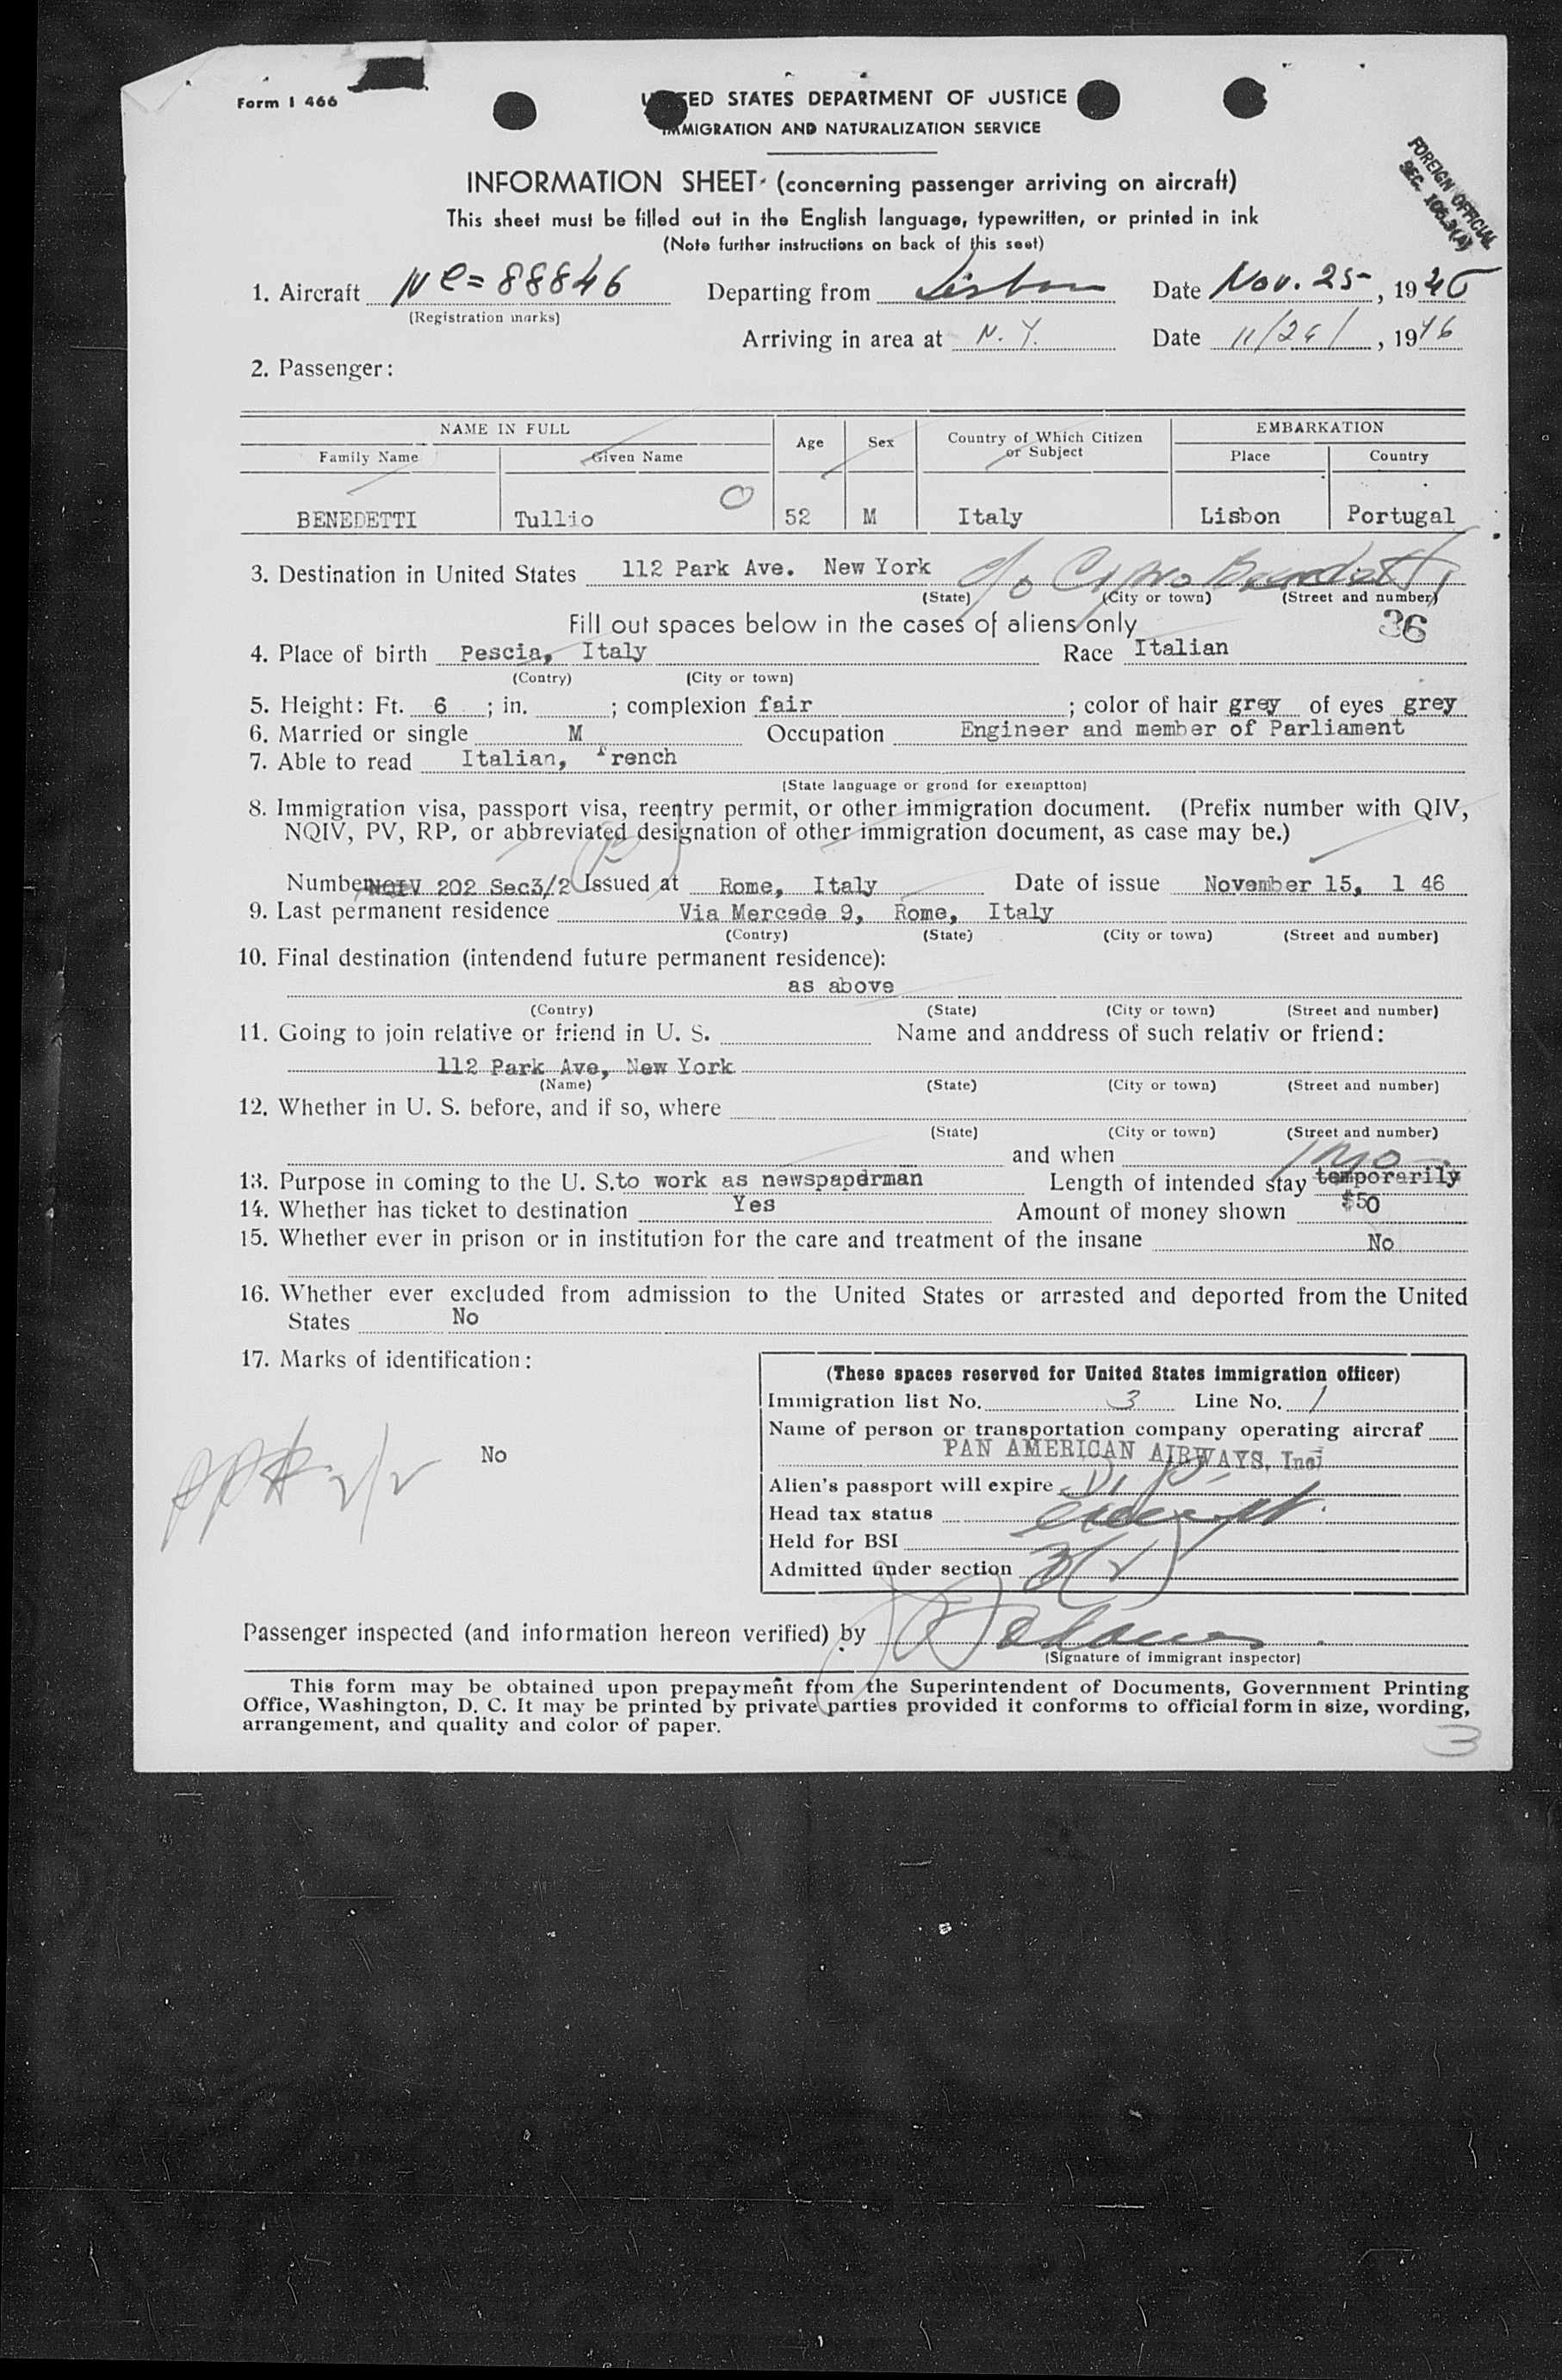 Form I 466
UNITED STATES DEPARTMENT OF JUSTICE
IMMIGRATION AND NATURALIZATION SERVICE
FOREIGN OFFICIAL
SEC.
INFORMATION SHEET (concerning passenger arriving on aircraft)
This sheet must be filled out in the English language, typewritten, or printed in ink
(Note further instructions on back of this seet)
1. Aircraft NC=88846 Departing from Lisbon Date Nov. 25, 1946
(Registration marks)
Arriving in area at N.Y. Date 11/26/, 1946
2. Passenger:
NAME IN FULL Age Sex Country of Which Citizen or Subject EMBARKATION
Family Name Given Name Place Country
BENEDETTI Tullio 52 M Italy Lisbon Portugal
3. Destination in United States 112 Park Ave. New York c/o Benedetti
(State) (City or town) (Street and number)
Fill out spaces below in the cases of aliens only 36
4. Place of birth Pescia, Italy Race Italian
(Contry) (City or town)
5. Height: Ft. 6 ; in. ; complexion fair ; color of hair grey of eyes grey
6. Married or single M Occupation Engineer and member of Parliament
7. Able to read Italian, French
(State language or grond for exemptton)
8. Immigration visa, passport visa, reentry permit, or other immigration document. (Prefix number with QIV,
NQIV, PV, RP, or abbreviated designation of other immigration document, as case may be.)
Number NQIV 202 Sec3/2 Issued at Rome, Italy Date of issue November 15, 1 46
9. Last permanent residence Via Mercede 9, Rome, Italy
(Contry) (State) (City or town) (Street and number)
10. Final destination (intendend future permanent residence):
as above
(Contry) (State) (City or town) (Street and number)
11. Going to join relative or friend in U. S. Name and anddress of such relativ or friend:
112 Park Ave, New York
(Name) (State) (City or town) (Street and number)
12. Whether in U. S. before, and if so, where
(State) (City or town) (Street and number)
and when 1 mo
13. Purpose in coming to the U. S. to work as newspaperman Length of intended stay temporarily
14. Whether has ticket to destination Yes Amount of money shown $50
15. Whether ever in prison or in institution for the care and treatment of the insane No
16. Whether ever excluded from admission to the United States or arrested and deported from the United
States No
17. Marks of identification:
No
(These spaces reserved for United States immigration officer)
Immigration list No. 3 Line No. 1
Name of person or transportation company operating aircraf
PAN AMERICAN AIRWAYS, Inc.
Alien's passport will expire
Head tax status exempt
Held for BSI
Admitted under section 3(2)
Passenger inspected (and information hereon verified) by
(Signature of immigrant inspector)
This form may be obtained upon prepayment from the Superintendent of Documents, Government Printing
Office, Washington, D. C. It may be printed by private parties provided it conforms to official form in size, wording,
arrangement, and quality and color of paper.
3